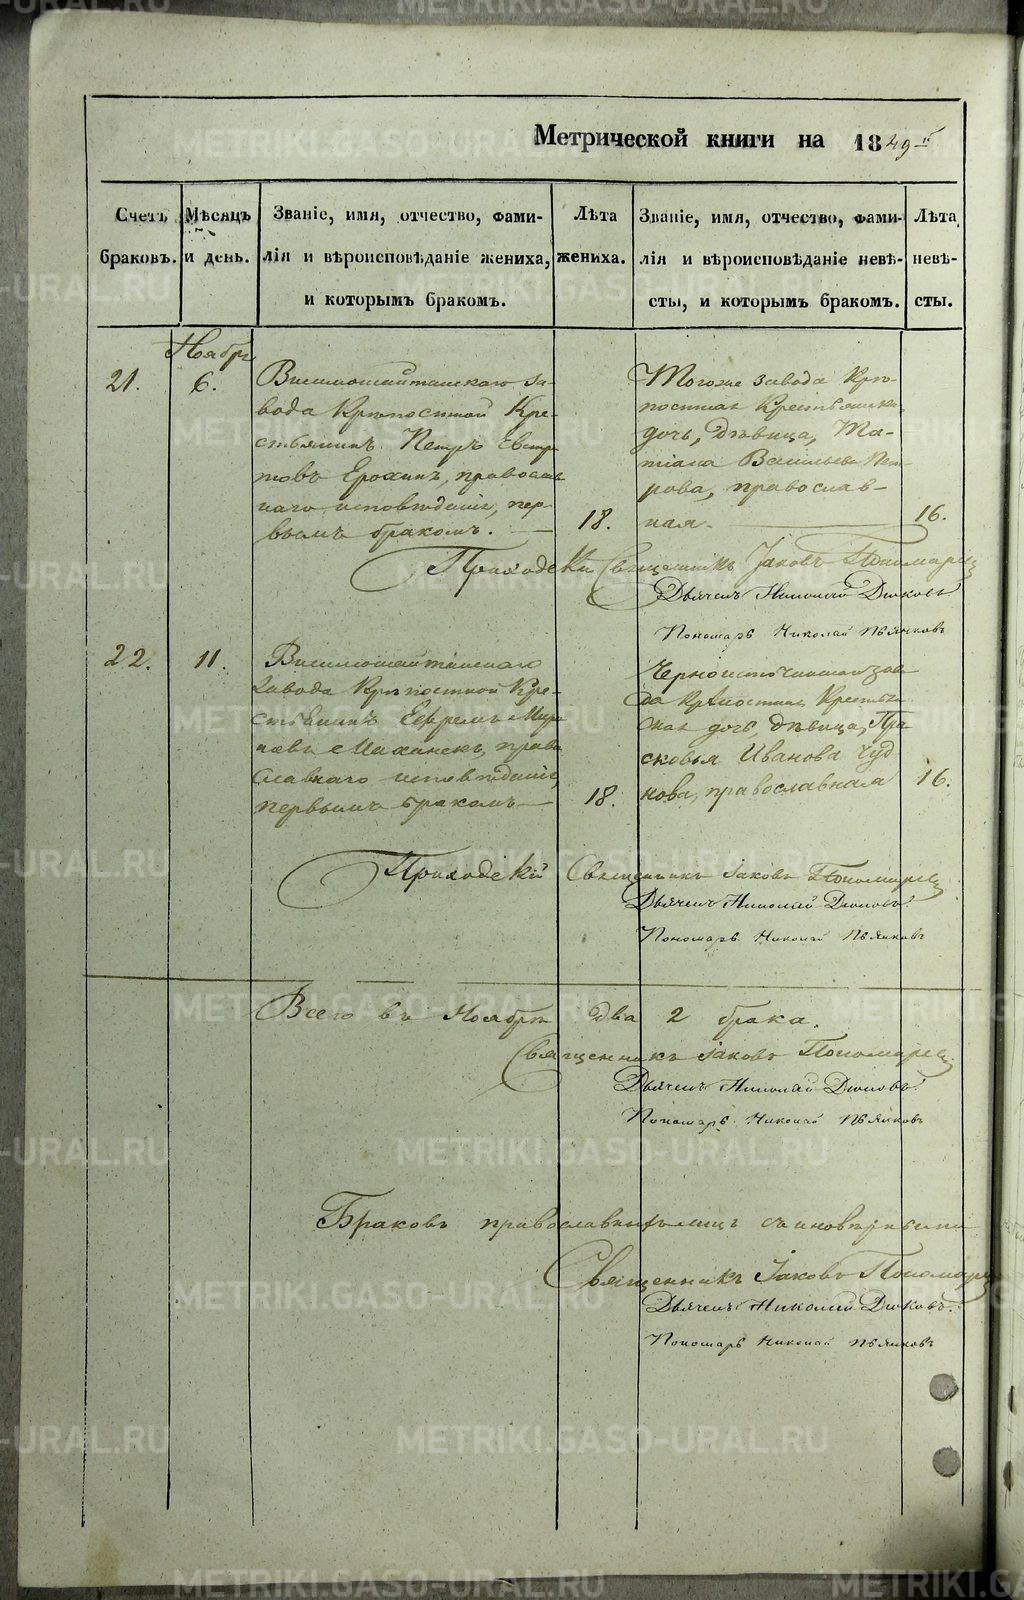 Метрической книги на 1849 й
Счетъ браковъ.
Мѣсяцъ и день.
Званіе, имя, отчество, фами-
лія и вѣроисповѣданіе жениха,
и которымъ бракомъ.
Лѣта жениха.
Званіе, имя, отчество, фами-
лія и вѣроисповѣданіе невѣ-
сты, и которымъ бракомъ.
Лѣта невѣ-
сты.
Ноябрь
21.
6.
Висимошайтанскаго за-
вода Крѣпостной Кре-
стьянинъ Петръ Евстра
товъ Ерохинъ, православ
наго исповѣданія, пер-
вымъ бракомъ.
18.
Тогоже завода Крѣ-
постная Крестьянская
дочь, дѣвица, Та-
тіана Васильева Пет
рова, православ-
ная.
16.
Приходскій Священникъ Іаковъ Пономаревъ
Дьячекъ Николай Дюковъ
Пономарь Николай Пьянковъ
22.
11.
Висимошайтанскаго
завода Крѣпостной Кре-
стьянинъ Ефремъ
православнаго исповѣданія,
первымъ бракомъ
18.
Черноисточинскаго заво
да Крѣпостная Крестьян
ская дочь, дѣвица, Пра
сковья Иванова Чуд
нова, православная
16.
Приходскій Священникъ Іаковъ Пономаревъ
Дьячекъ Николай Дюковъ
Пономарь Николай Пьянковъ
Всего въ Ноябрѣ два 2 брака.
Священникъ Іаковъ Пономаревъ
Дьячекъ Николай Дюковъ
Пономарь Николай Пьянковъ
Браковъ православныхъ лицъ съ иновѣрными
Священникъ Іаковъ Пономаревъ
Дьячекъ Николай Дюковъ.
Пономарь Николай Пьянковъ
METRIKI.GASO-URAL.RU